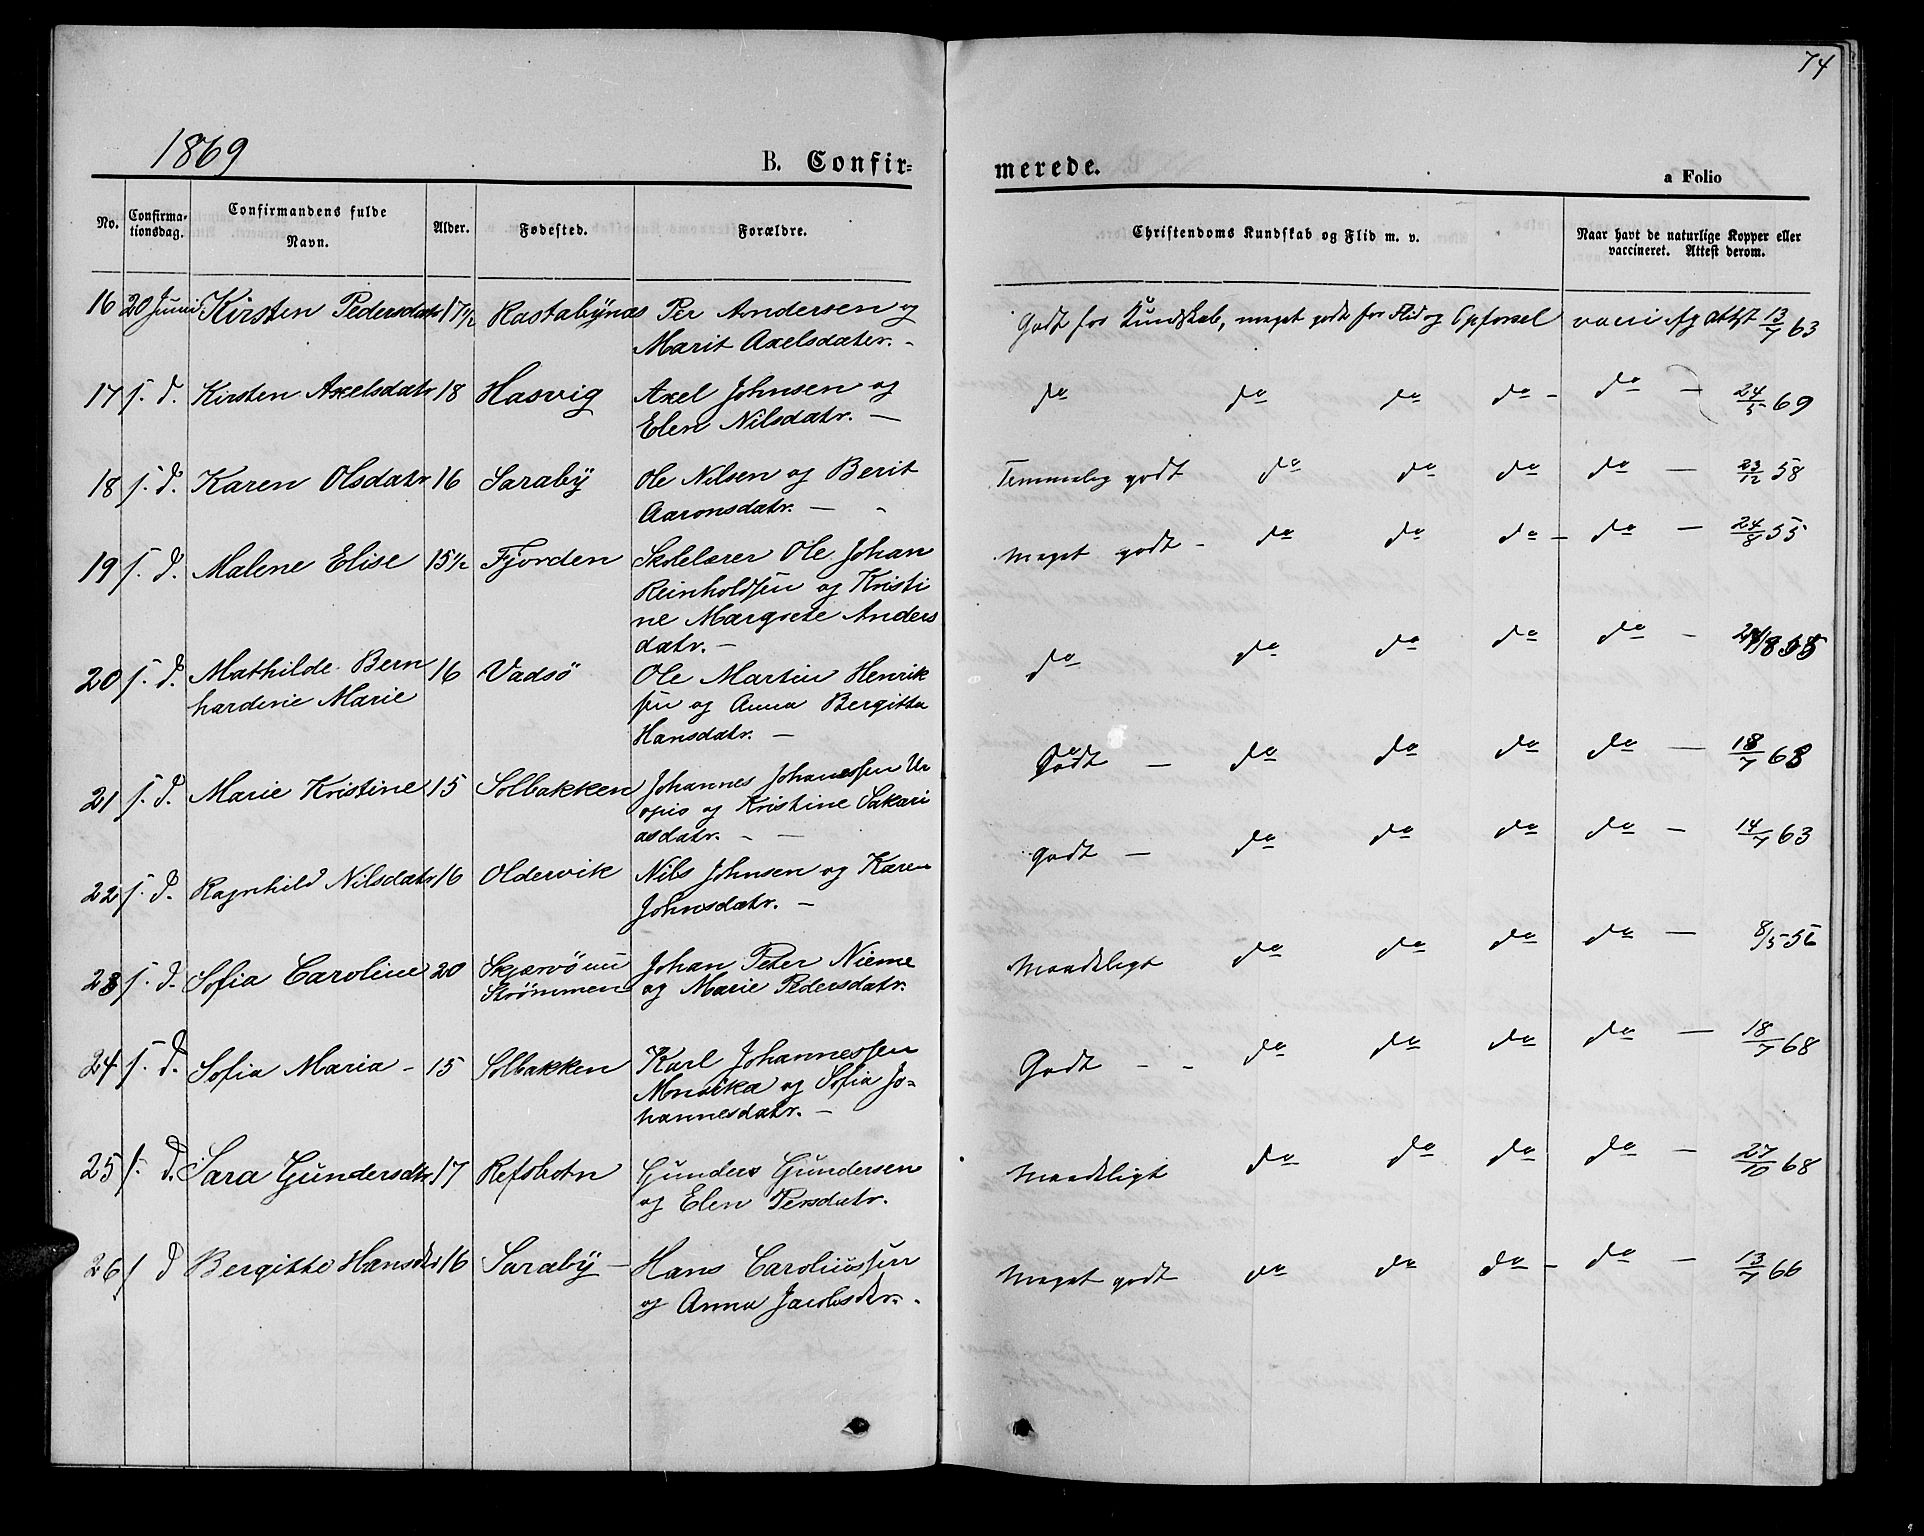 74
1869
B. Confir=
merede.
a Folio
No. Confirma-tionsdag. Confirmandens fulde Navn. Alder. Fødested. Forældre. Christendoms Kundskab og Flid m. v. Naar havt de naturlige Kopper eller vaccineret. Attest derom.
16 20 Juni Kirsten Pedersdatr 17 1/2 Rastabynæs Per Andersen og Godt for Kundskab, meget godt for Flid og Opførsel vacci. flg attst 13/7 63
Marit Axelsdatr. -
17 s. d. Kirsten Axelsdatr 18 Hasvig Axel Johnsen og do do do do - do - 24/5 69
Elen Nilsdatr. -
18 s. d. Karen Olsdatr 16 Saraby Ole Nilsen og Berit Temmelig godt do do do do - 23/12 58
Aaronsdatr. -
19 s. d. Malene Elise 15 1/2 Fjorden Skolelærer Ole Johan Meget godt - do do do - do - 24/8 55
Reinholdsen og Kristi
ne Margrete Anders
datr. -
20 s. d. Mathilde Bern 16 Vadsö Ole Martin Henrik do do do do do - 24/8 55
hardine Marie sen og Anna Bergitta
Hansdatr. -
21 s. d. Marie Kristine 15 Solbakken Johannes Johanessen Ur Godt - do do do do - 18/7 68
opio og Kristine Sakari
asdatr. - -
22 s. d. Ragnhild Nilsdatr 16 Oldervik Nils Johnsen og Karen Godt - do do do do - 14/7 63
Johnsdatr. -
23 s. d. Sofia Caroline 20 Skjærvö Johan Peter Nieme Maadeligt do do do do - 8/5 56
Strömmen og Marie Pedersdatr.
24 s. d. Sofia Maria - 15 Solbakken Karl Johannessen Godt - - do do do do - 18/7 68
og Sofia Jo=
hannesdatr. -
25 s. d. Sara Gundersdtr 17 Refsbotn Gunders Gundersen Maadeligt do do do do - 27/10 68
og Elen Persdatr.
26 s d Bergitte Hansdtr 16 Saraby - Hans Caroliussen Meget godt do do do - do - 13/7 66
og Anna Jacobsdtr. -